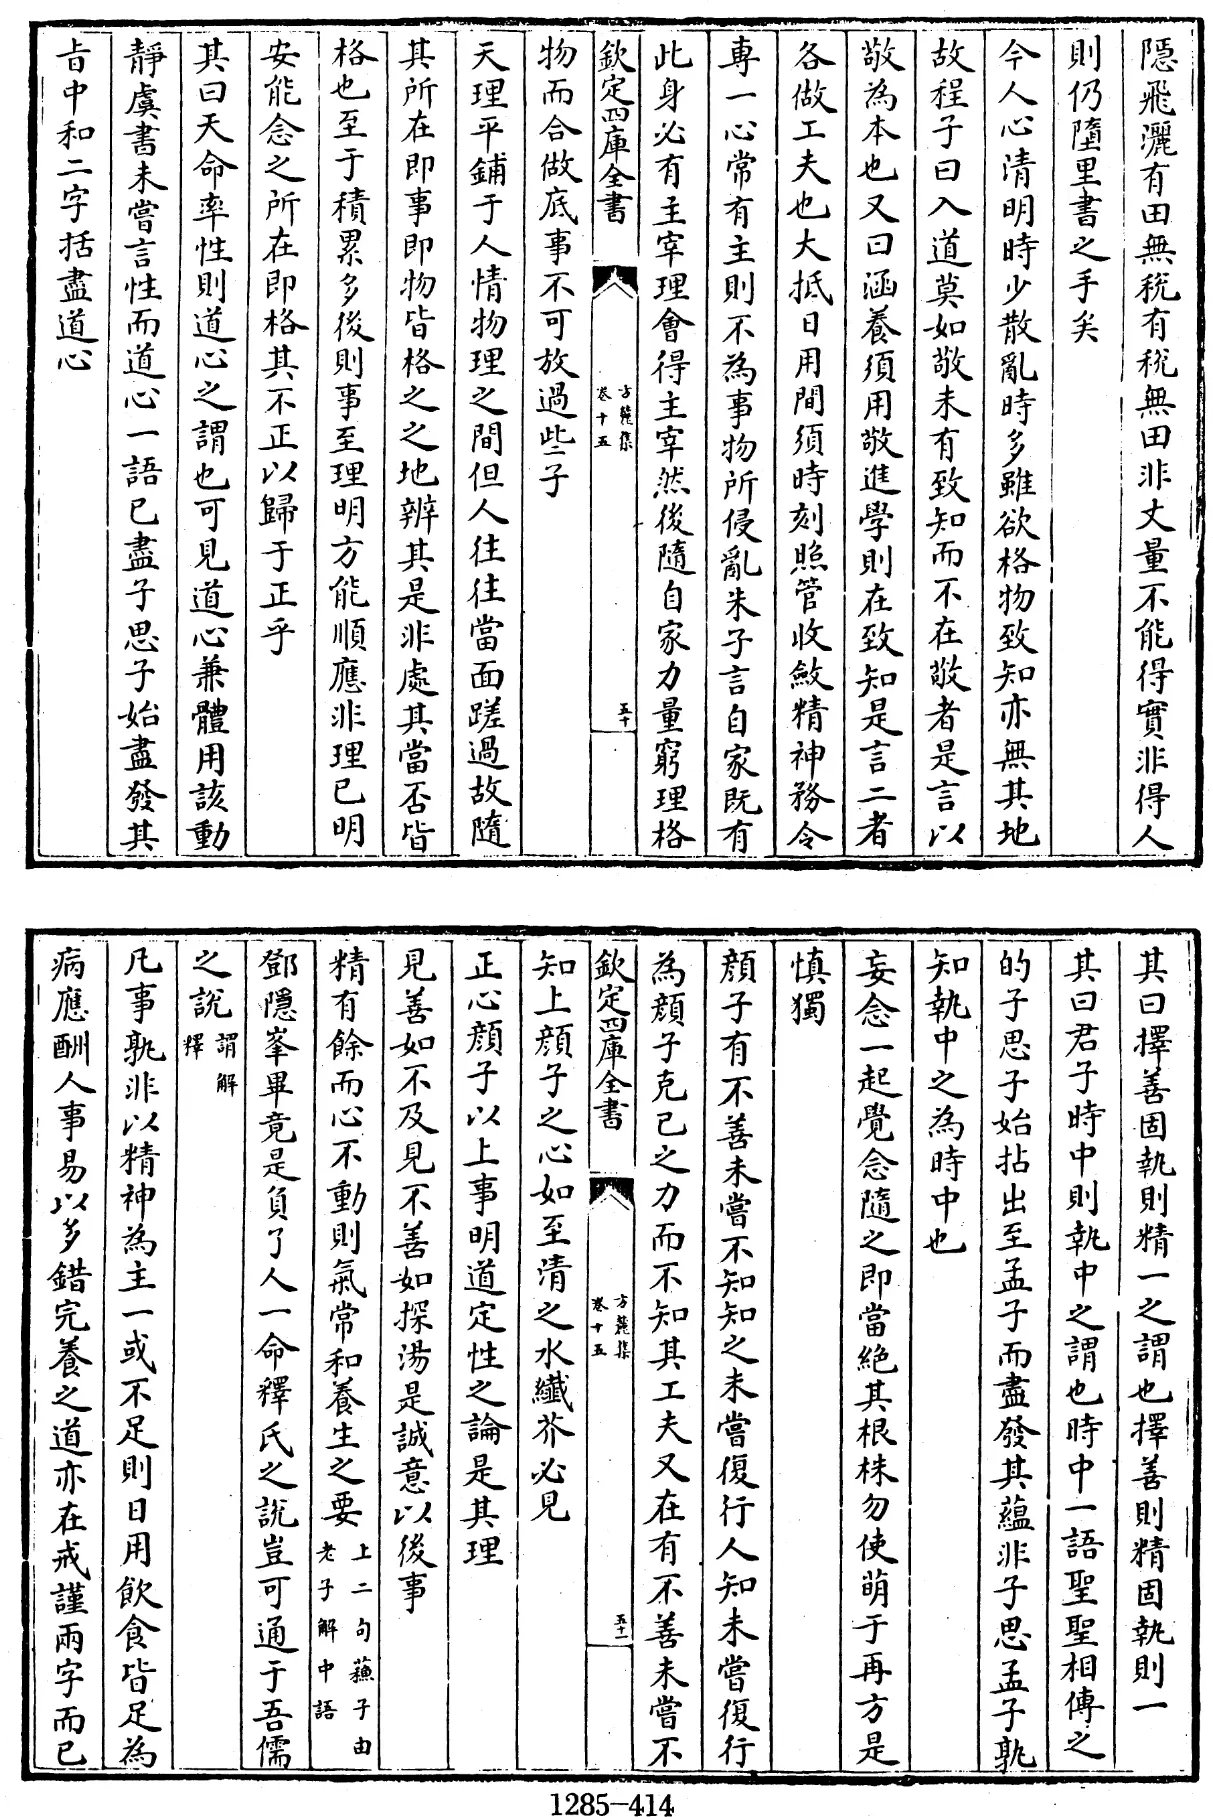 隠飛灑有田無税有税無田非丈量不能得實非得人
則仍墮里書之手矣
今人心清明時少散亂時多雖欲格物致知亦無其地
故程子曰入道莫如敬未有致知而不在敬者是言以
敬為本也又曰涵養須用敬進學則在致知是言二者
各做工夫也大抵日用間須時刻照管收斂精神務令
專一心常有主則不為事物所侵亂朱子言自家既有
此身必有主宰理會得主宰然後隨自家力量窮理格
欽定四庫全書
方麓集
卷十五
五十
物而合做底事不可放過些子
天理平鋪于人情物理之間但人往往當面蹉過故隨
其所在即事即物皆格之之地辨其是非處其當否皆
格也至于積累多後則事至理明方能順應非理已明
安能念之所在即格其不正以歸于正乎
其曰天命率性則道心之謂也可見道心兼體用該動
靜虞書未嘗言性而道心一語已盡子思子始盡發其
旨中和二字括盡道心
其曰擇善固執則精一之謂也擇善則精固執則一
其曰君子時中則執中之謂也時中一語聖聖相傳之
的子思子始拈出至孟子而盡發其蘊非子思孟子孰
知執中之為時中也
妄念一起覺念隨之即當絶其根株勿使萌于再方是
慎獨
顔子有不善未嘗不知知之未嘗復行人知未嘗復行
為顔子克己之力而不知其工夫又在有不善未嘗不
欽定四庫全書
方麓集
卷十五
五十一
知上顔子之心如至清之水纖芥必見
正心顔子以上事明道定性之論是其理
見善如不及見不善如探湯是誠意以後事
精有餘而心不動則氣常和養生之要上二句蘓子由老子解中語
鄧隱峯畢竟是負了人一命釋氏之説豈可通于吾儒
之説謂解釋
凡事孰非以精神為主一或不足則日用飲食皆足為
病應酬人事易以多錯完養之道亦在戒謹兩字而已
1285-414